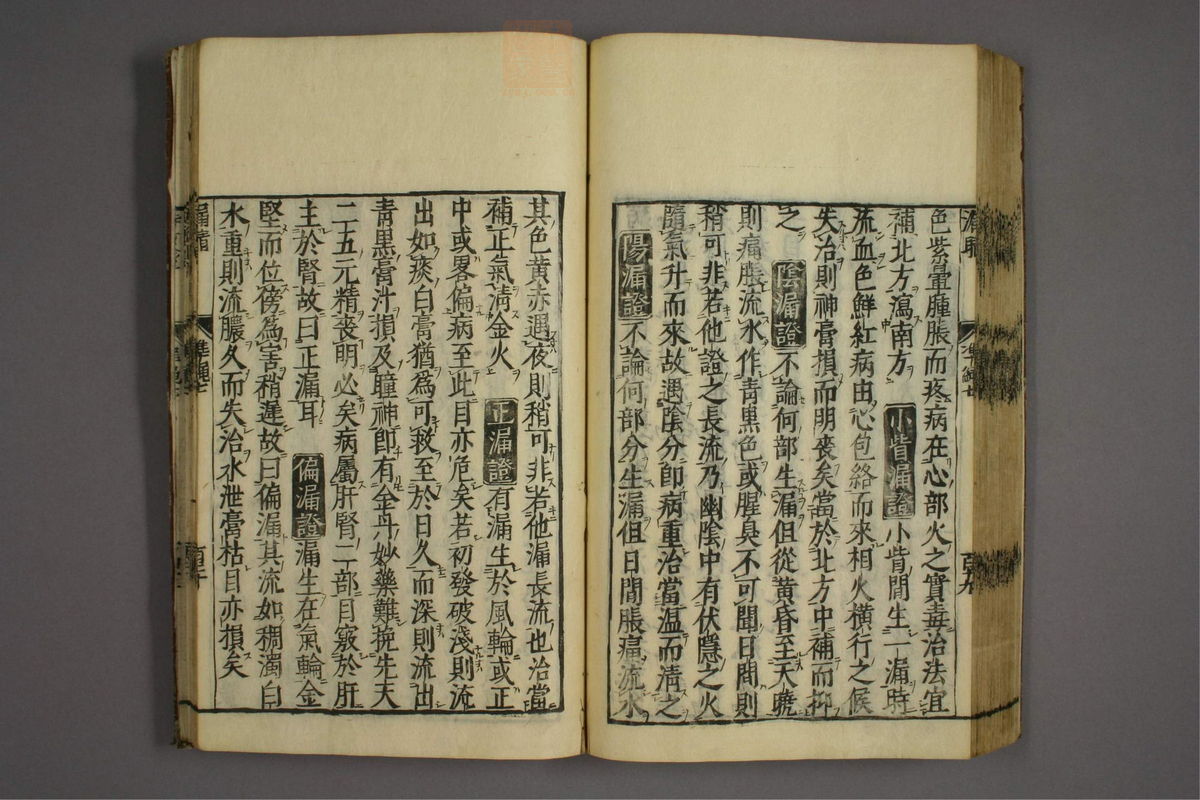 色紫暈腫脹而疼病在心部火之實毒治法宜
補北方瀉南方 小眥漏證 小眥間生一漏時
流血色鮮紅病由心包絡而來相火橫行之候
失治則神膏損而明喪矣當於北方中補而抑
之 陰漏證 不論何部生漏但從黃昏至天曉
則痛脹流水作青黑色或腥臭不可聞日間則
稍可非若他證之長流乃幽陰中有伏隱之火
隨氣升而來故遇陰分即病重治當温而清之
陽漏證 不論何部分生漏但日間脹痛流水
其色黃赤遇夜則稍可非若他漏長流也治當
補正氣淸金火 正漏證 有漏生於風輪或正
中或畧偏病至此目亦危矣若初發破淺則流
出如痰白膏猶爲可救至於日久而深則流出
靑黑膏汁損及瞳神卽有金丹妙藥難挽先天
二五元精喪明必矣病屬肝腎二部目竅於肝
主於腎故曰正漏耳 偏漏證 漏生在氣輪金
堅而位傍爲害稍遲故曰偏漏其流如稠濁白
水重則流膿久而失治水泄膏枯目亦損矣